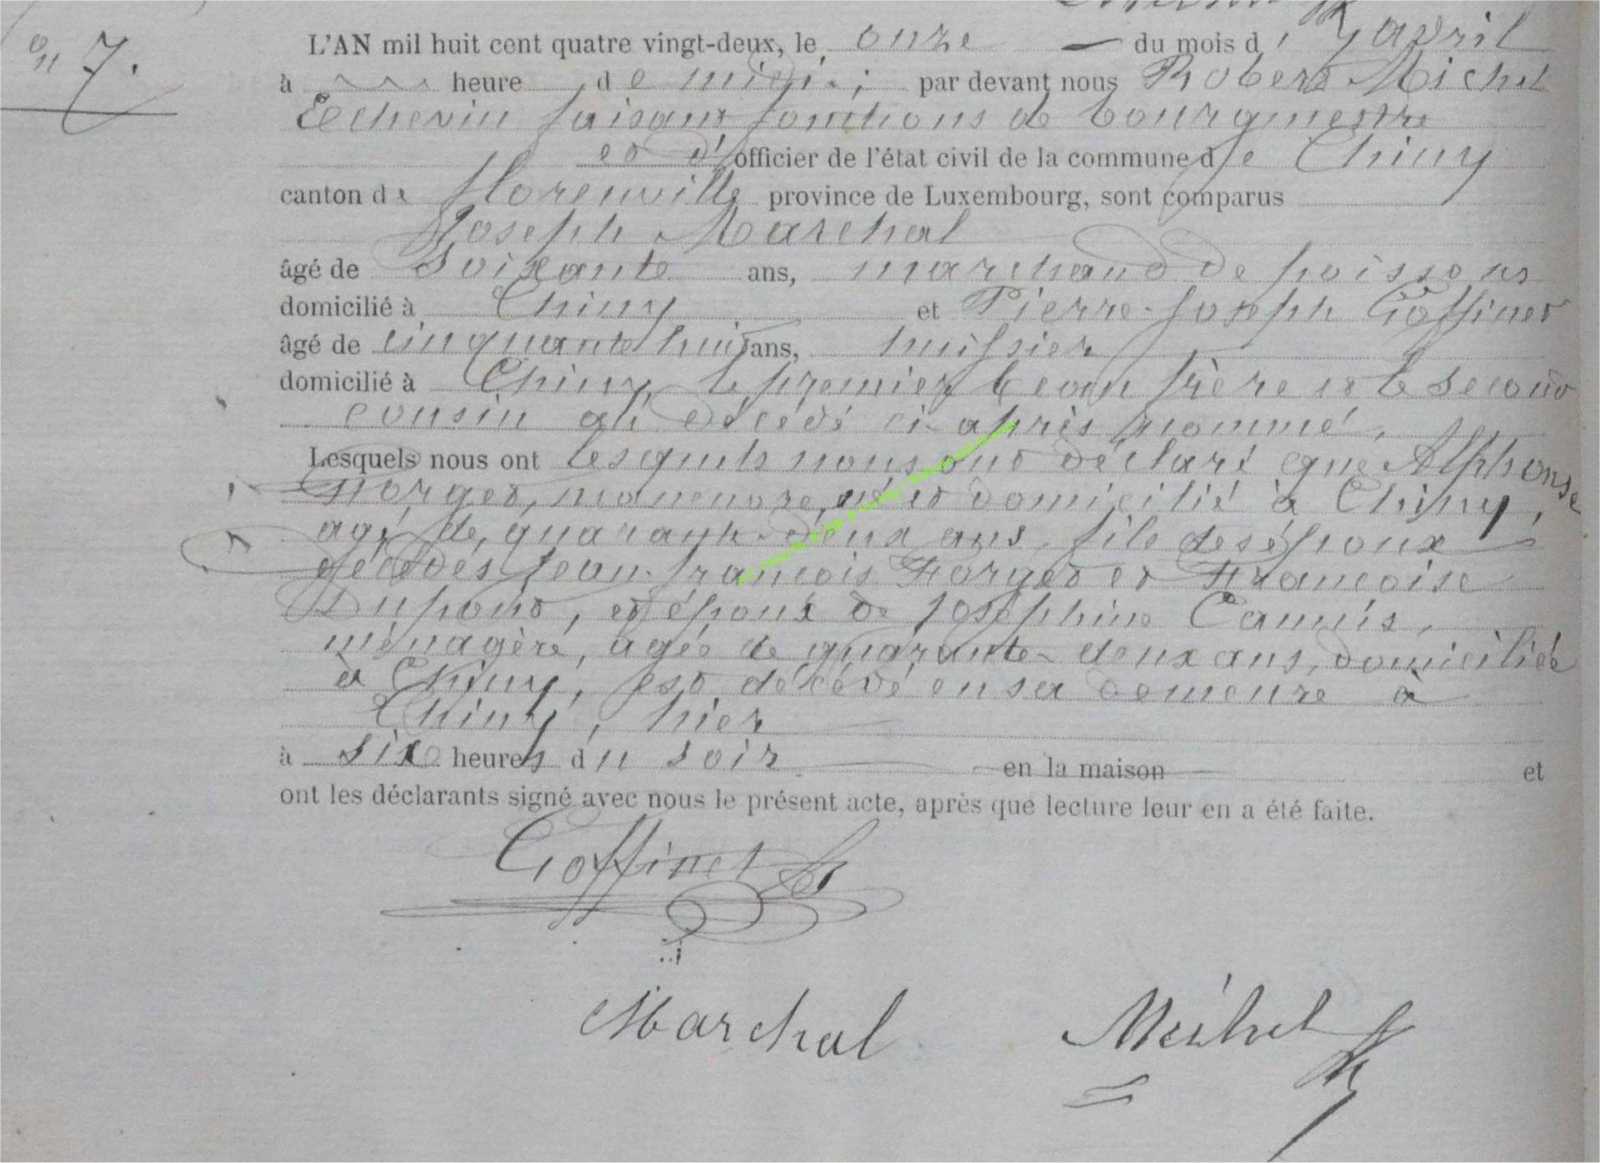 n° 7.
L'AN mil huit cent quatre vingt-deux, le onze du mois d'avril
à heure de midi; par devant nous Robert Michel
Echevin faisant fonctions de bourgmestre
et d'officier de l'état civil de la commune de Chiny
canton de Florenville province de Luxembourg, sont comparus
Joseph Marchal
âgé de Soixante ans, marchand de poissons
domicilié à Chiny et Pierre-Joseph Goffinet
âgé de cinquante huit ans, huissier
domicilié à Chiny, le premier beau frère et le second
cousin au décédé ci-après nommé.
Lesquels nous ont lesquels nous ont déclaré que Alphonse
Horget, manœuvre, né et domicilié à Chiny,
agé de quarante-deux ans, fils des époux
décédés Jean-François Horget et Françoise
Dupont, et époux de Joséphine Camus,
ménagère, agée de quarante-deux ans, domiciliée
à Chiny, est décédé en sa demeure à
Chiny, hier
à six heures du soir en la maison et
ont les déclarants signé avec nous le présent acte, après que lecture leur en a été faite.
Goffinet
Marchal Michel